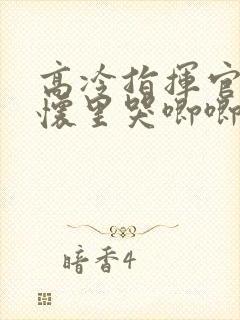 高冷指揮官
懷里哭唧唧
暗香4